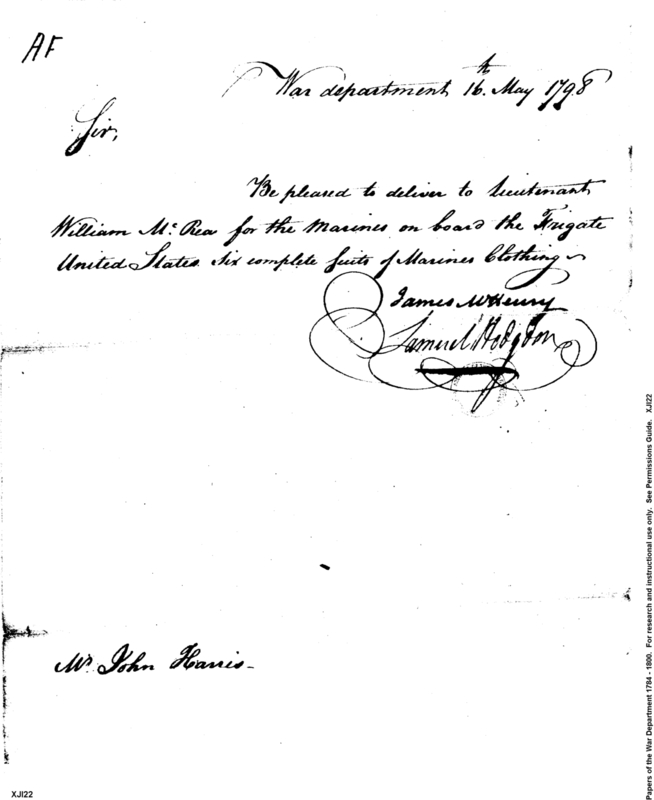 AF
War department 16th. May 1798
Sir,
Be pleased to deliver to Lieutenant
William Mc. Rea for the Marines on board the Frigate
United States Six complete Suits of Marines Clothing
James McHenry
Samuel Hodgdon
Mr. John Harris
XJI22
Papers of the War Department 1784 - 1800. For research and instructional use only. See Permissions Guide. XJI22